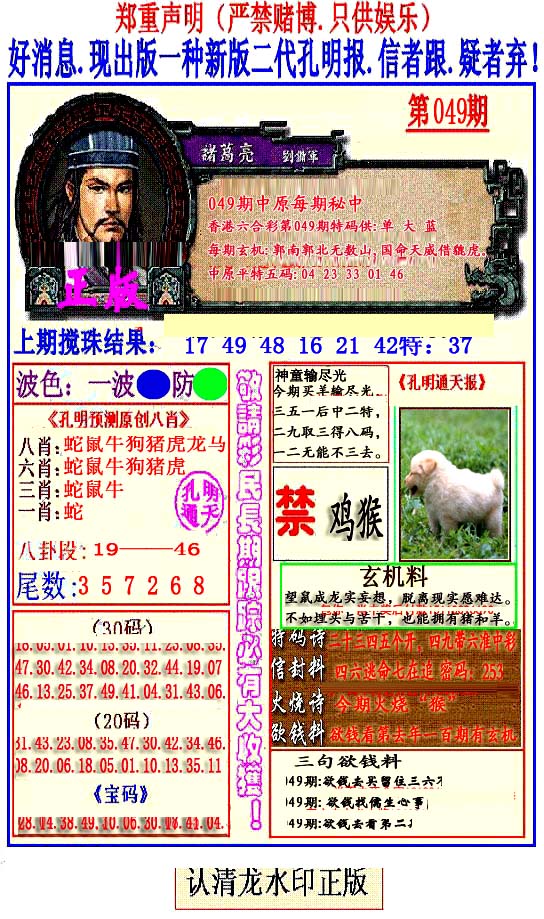 郑重声明（严禁赌博.只供娱乐）
好消息.现出版一种新版二代孔明报.信者跟.疑者弃!
第049期
諸葛亮 劉備軍
049期中原每期秘中
香港六合彩第049期特码供: 单 大 蓝
每期玄机: 郭南郭北无数山, 国命天威借魏虎。
中原平特五码: 04 23 33 01 46
正版
上期搅珠结果: 17 49 48 16 21 42特: 37
波色: 一波 防
《孔明预测原创八肖》
八肖: 蛇鼠牛狗猪虎龙马
六肖: 蛇鼠牛狗猪虎
三肖: 蛇鼠牛
一肖: 蛇
孔明通天
八卦段: 19——46
尾数: 3 5 7 2 6 8
敬請彩民長期跟踪必有大收獲!
神童输尽光
今期买羊输尽光
三五一后中二特,
二九取三得八码,
一二无能不三去。
《孔明通天报》
禁 鸡猴
玄机料
望鼠成龙实妄想, 脱离现实愿难达。
不如埋头与苦干, 也能拥有猪和羊。
(30码)
18.05.01.10.13.35.11.23.08.35.
47.30.42.34.08.20.32.44.19.07
46.13.25.37.49.41.04.31.43.06.
(20码)
31.43.23.08.35.47.30.42.34.46.
08.20.06.18.05.01.10.13.35.11
《宝码》
28.04.38.49.10.06.30.18.41.04.
特码诗 二十三四五个开, 四九带六准中彩
信封料 四六逃命七在追 密码: 253
火烧诗 今期火烧“猴”
欲钱料 欲钱看第去年一百期有玄机
三句欲钱料
049期:欲钱去买留位三六
049期: 欲钱找儒生心事
049期:欲钱去看第二
认清龙水印正版